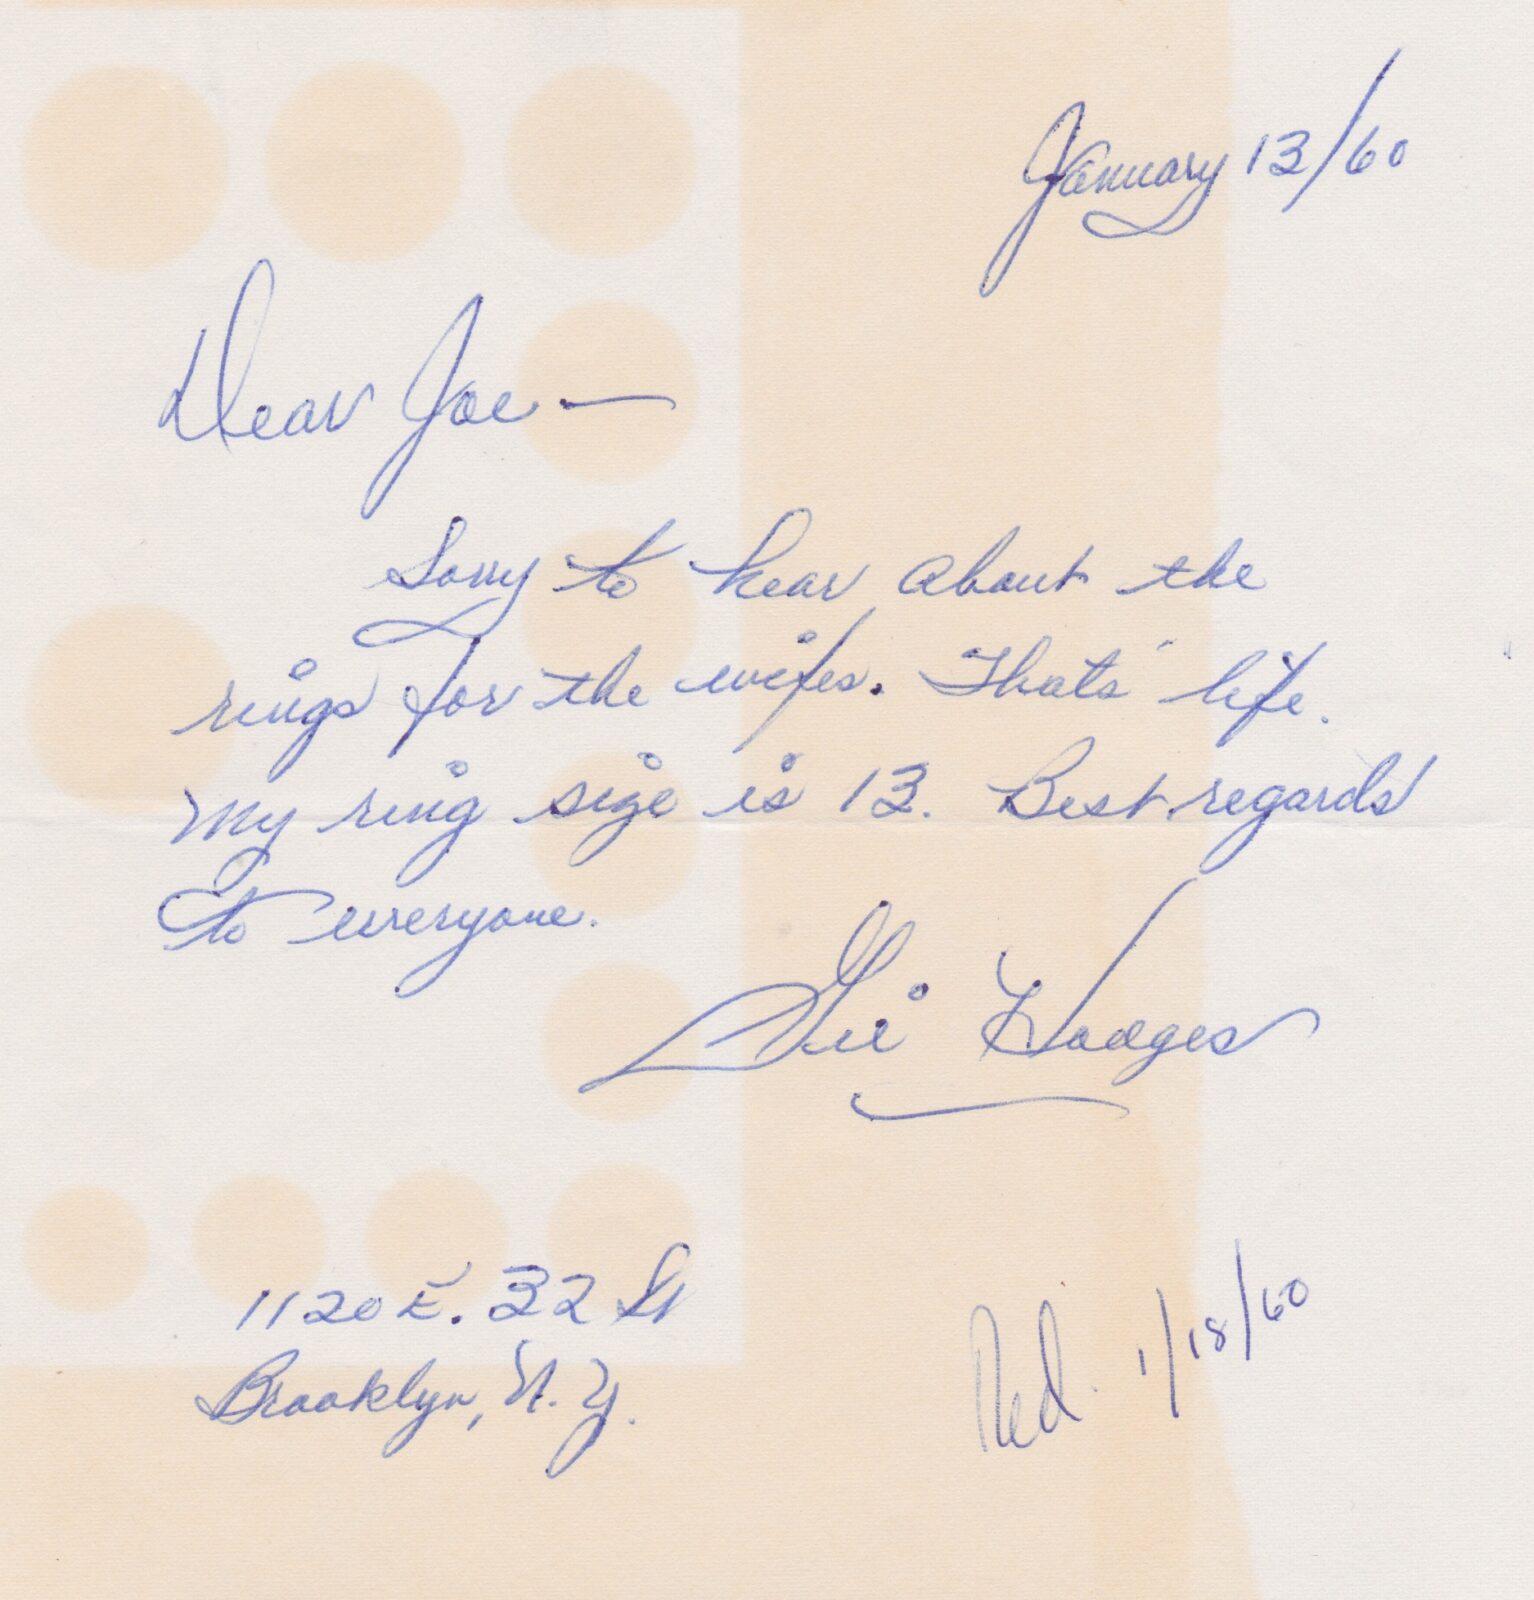 January 13/60
Dear Joe —
Sorry to hear about the
rings for the wifes. Thats' life.
My ring size is 13. Best regards
to everyone.
Gil Hodges
1120 E. 32 St
Brooklyn, N.Y.
Recd. 1/18/60